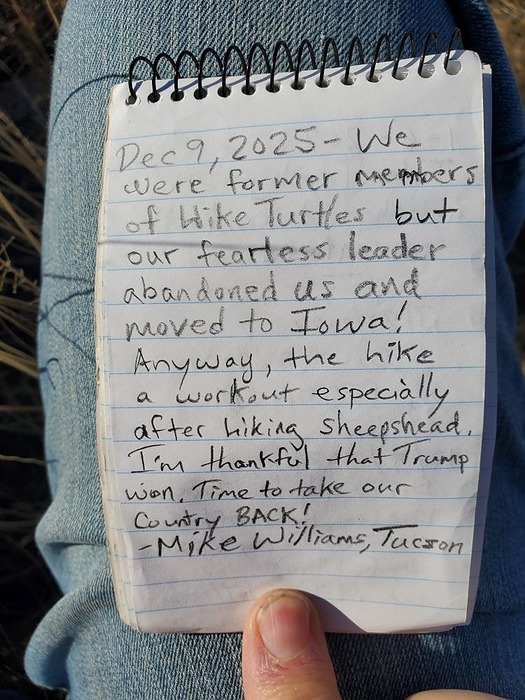 Dec 9, 2025 - We
were former members
of Hike Turtles but
our fearless leader
abandoned us and
moved to Iowa!
Anyway, the hike
a workout especially
after hiking Sheepshead.
I'm thankful that Trump
won. Time to take our
Country BACK!
-Mike Williams, Tucson